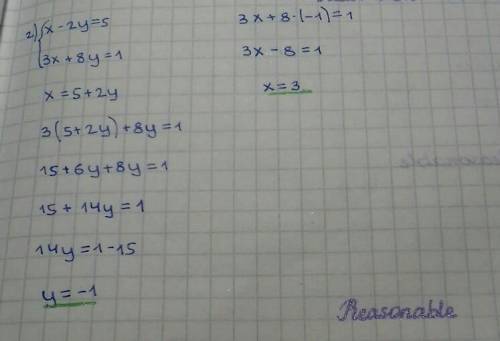 2) { x - 2y = 5
3x + 8y = 1
x = 5 + 2y
3(5 + 2y) + 8y = 1
15 + 6y + 8y = 1
15 + 14y = 1
14y = 1 - 15
y = -1
3x + 8·(-1) = 1
3x - 8 = 1
x = 3
Reasonable